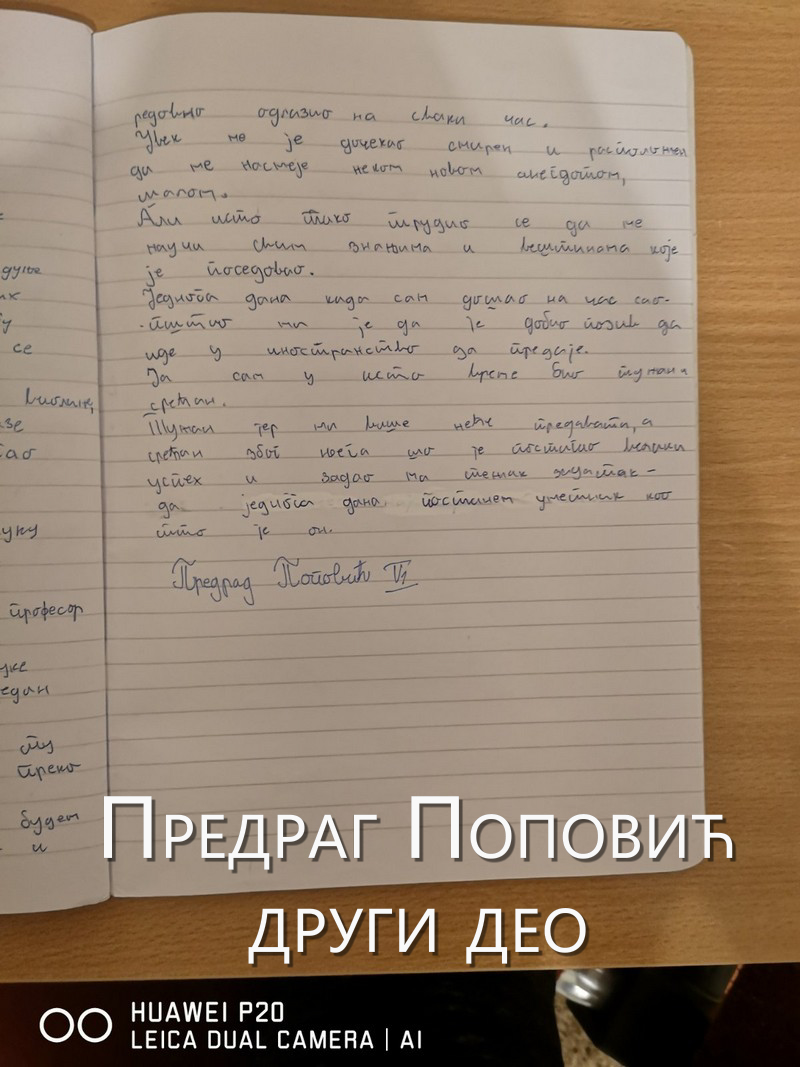 дуње
их
у
се
виолине,
зе
као
уку
професор
уке
един
ту
преко
будем
и
редовно одлазио на сваки час.
Увек ме је дочекао смирен и расположен
да ме насмеје неком новом анегдотом,
шалом.
Али исто тако трудио се да ме
научи свим знањима и вештинама које
је поседовао.
Једнога дана када сам дошао на час сао-
-пштио ми је да је добио позив да
иде у иностранство да предаје.
Ја сам у исто време био тужан и
срећан.
Тужан јер ми више неће предавати, а
срећан због њега што је постигао велики
успех и задао ми тежак задатак -
да једнога дана постанем уметник као
што је он.
Предраг Поповић V1
Предраг Поповић
други део
HUAWEI P20
LEICA DUAL CAMERA | AI